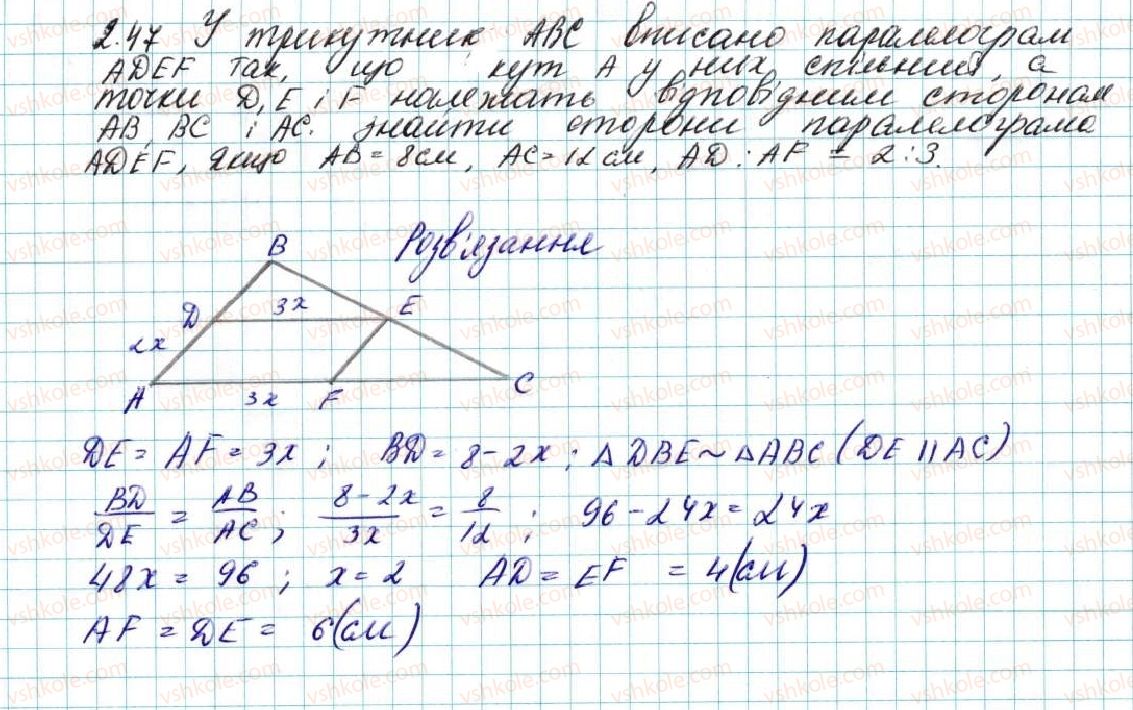 2.47 У трикутник ABC вписано паралелограм
ADEF так, що кут A у них спільний, а
точки D, E і F належать відповідним сторонам
AB, BC і AC. Знайти сторони паралелограма
ADEF, якщо AB = 8 см, AC = 12 см, AD : AF = 2 : 3.
Розв'язання
B
D 3x E
2x
A 3x F C
DE = AF = 3x ; BD = 8 - 2x ; △DBE ~ △ABC (DE || AC)
BD/DE = AB/AC ; 8 - 2x/3x = 8/12 ; 96 - 24x = 24x
48x = 96 ; x = 2 AD = EF = 4 (см)
AF = DE = 6 (см)